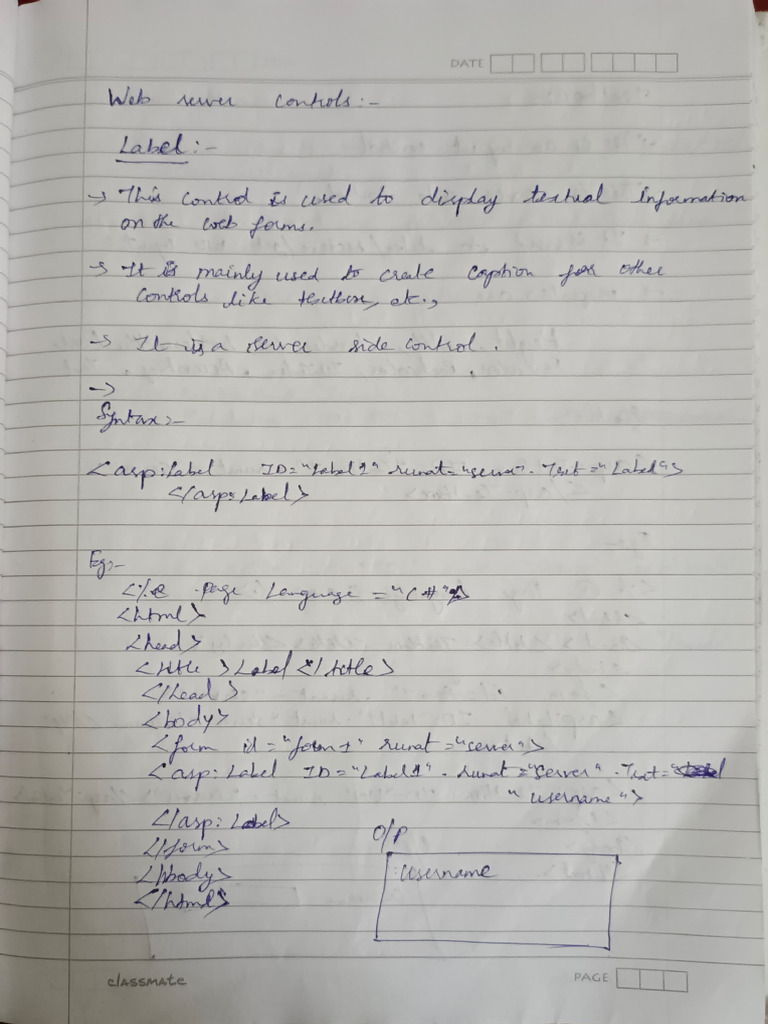 DATE
Web server controls:-
Label:-
→ This control is used to display textual information
on the web forms.
→ It is mainly used to create caption for other
controls like textbox, etc.,
→ It is a server side control.
→
Syntax:-
<asp:Label ID="Label1" runat="server" Text="Label">
</asp:Label>
Eg:-
<%@ page Language="C#"%>
<html>
<head>
<title>Label</title>
</head>
<body>
<form id="form1" runat="server">
<asp:Label ID="Label1" runat="server" Text=
"username">
</asp:Label>
</form>
</body>
</html>
O/P
username
classmate
PAGE